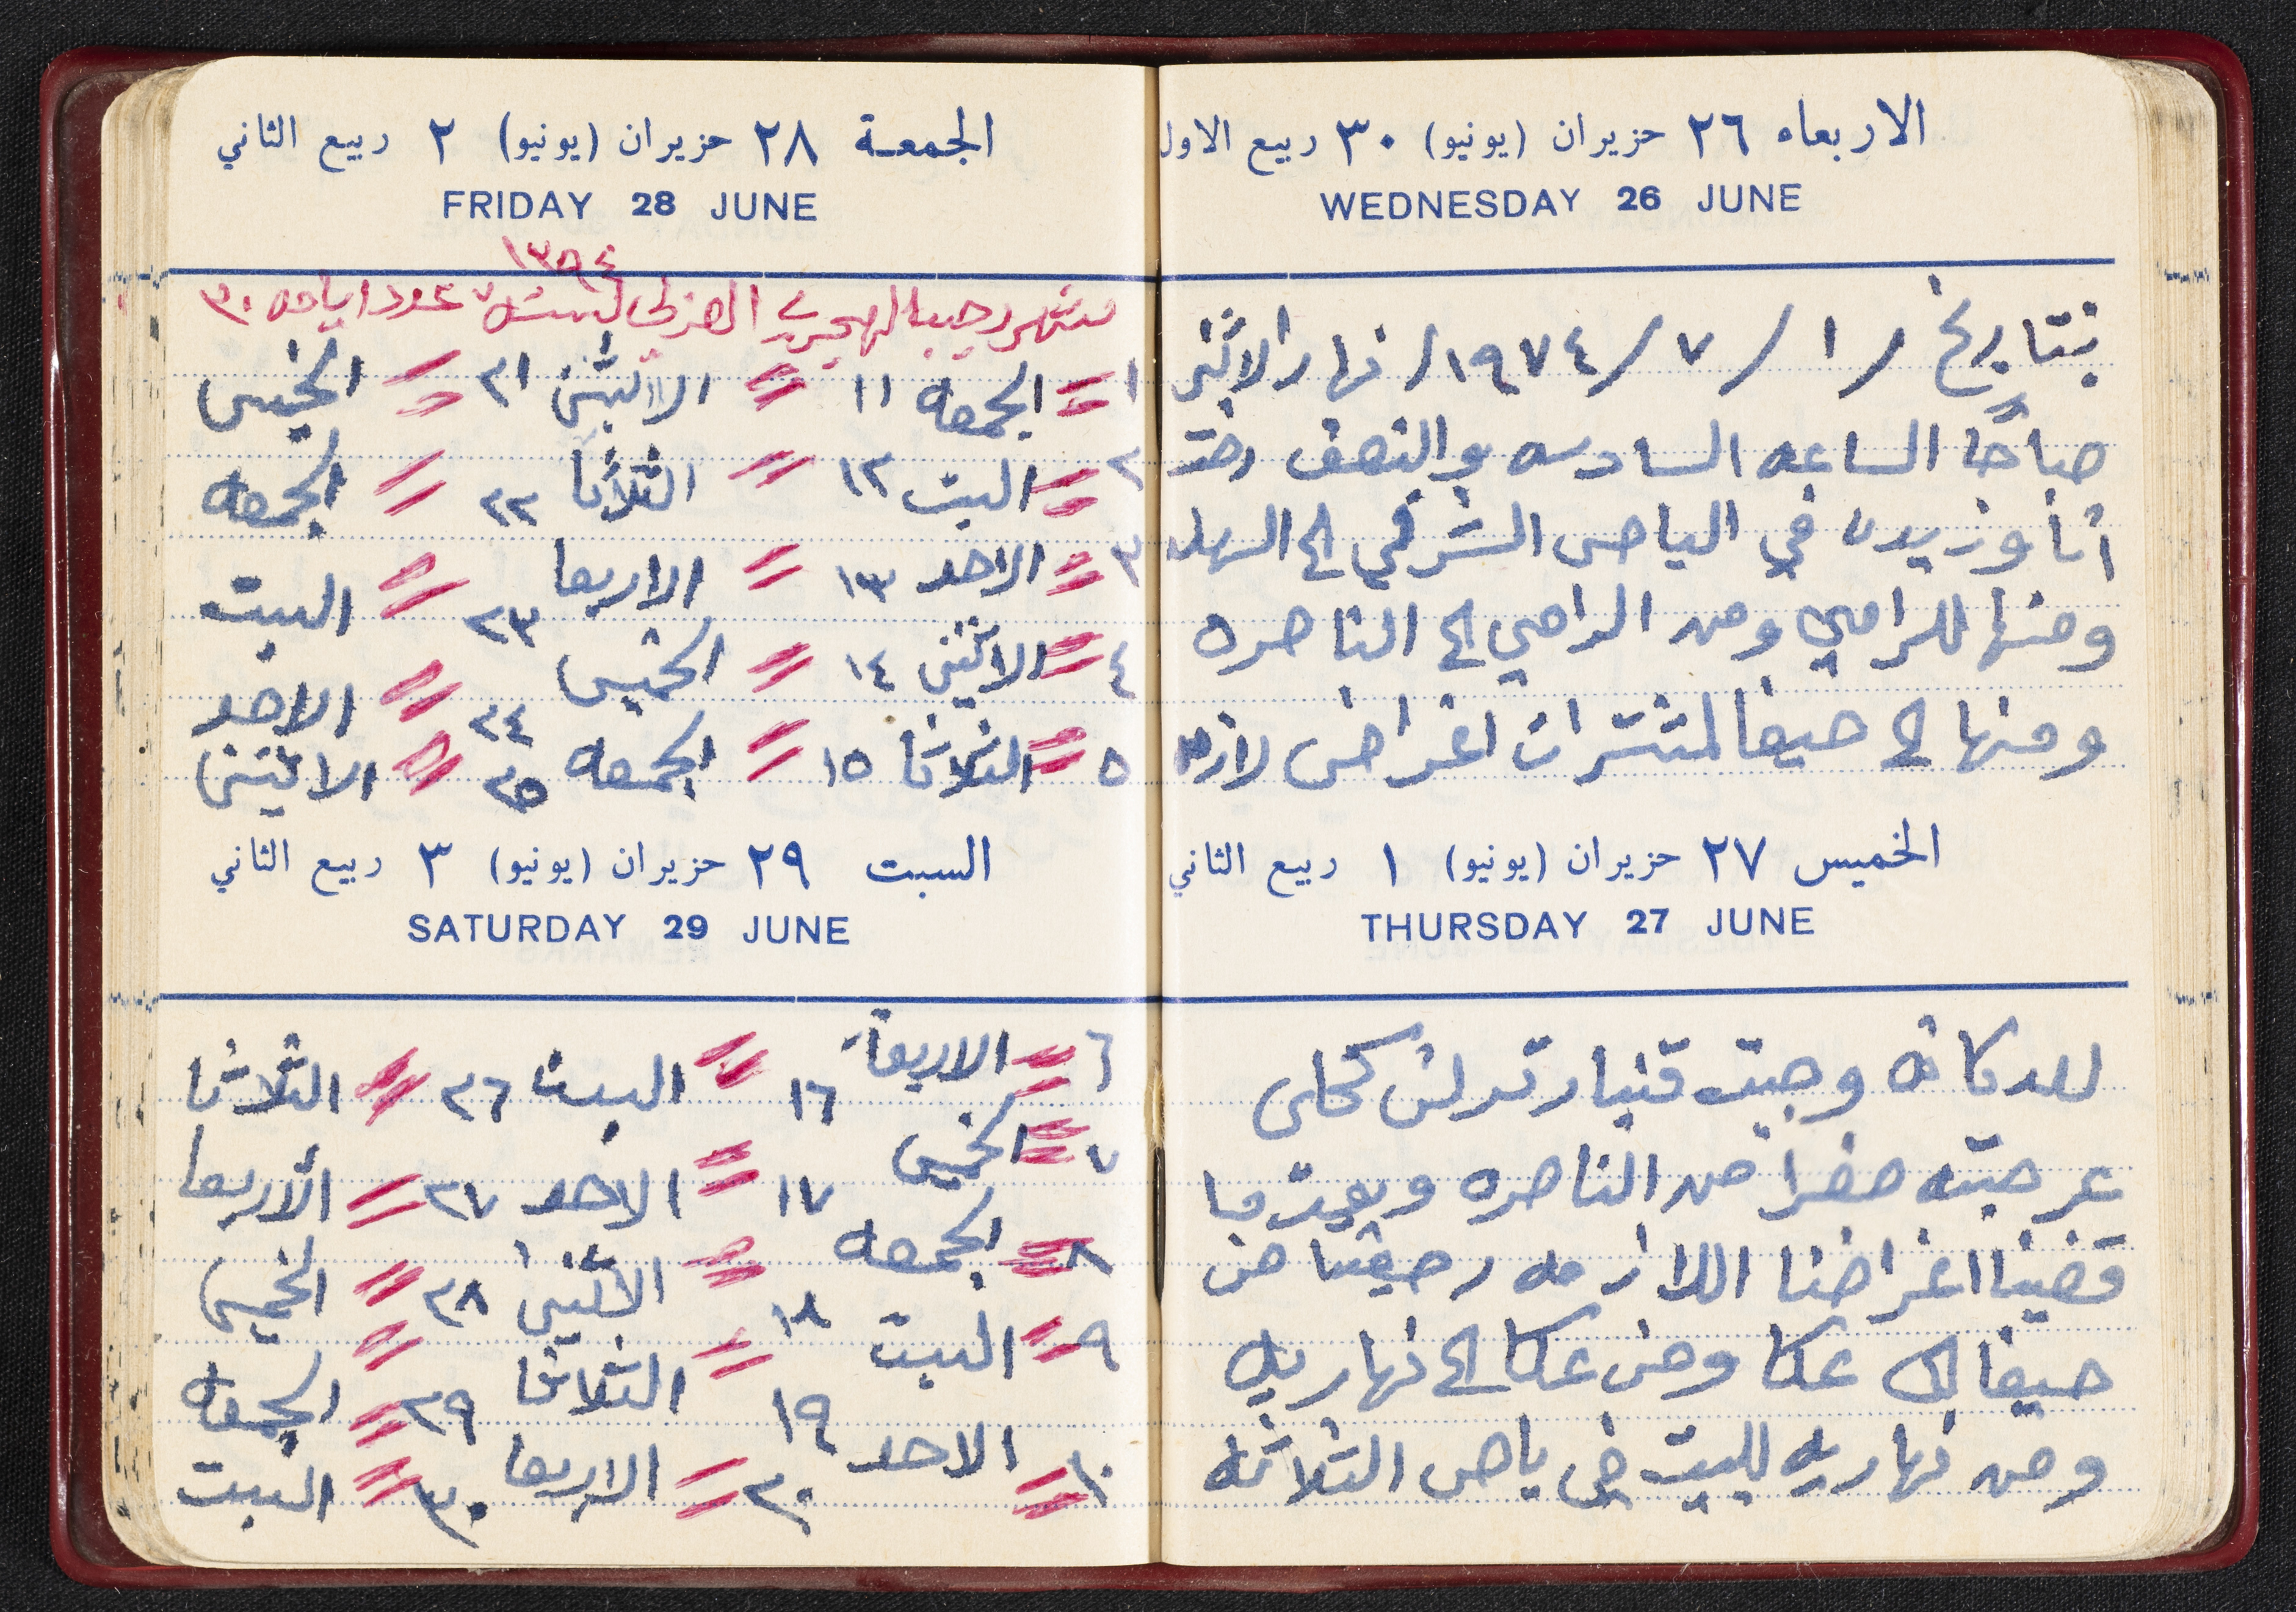 الاربعاء ٢٦ حزيران (يونيو) ٣٠ ربيع الاول
WEDNESDAY 26 JUNE
بتاريخ /١/٧/١٩٧٤/ نهار الاثنين
صباحًا الساعه السادسه والنصف رحت
أنا وزيدن في الباص الشرقي الى السهله
ومنها للرامي ومن الرامي الى الناصره
ومنها الى حيفا لمشترات اغراض لازمه
الخميس ٢٧ حزيران (يونيو) ١ ربيع الثاني
THURSDAY 27 JUNE
للدكانه وجبت قنباز ترلين كحلي
عرجيته صفرا من الناصره وبعدما
قضينا اغراضنا اللازمه رجعنا من
حيفا الى عكا ومن عكا الى نهاريه
ومن نهاريه للبيت في باص الثلاثه
الجمعة ٢٨ حزيران (يونيو) ٢ ربيع الثاني
FRIDAY 28 JUNE
١٣٩٤
شهر رجب الهجري الغربي لسنة عدد ايامه ٣٠
١ = الجمعه ١١ = الاثنين ٢١ = الخميس
٢ = السبت ١٢ = الثلاثا ٢٢ = الجمعه
٣ = الاحد ١٣ = الاربعا ٢٣ = السبت
٤ = الاثنين ١٤ = الخميس ٢٤ = الاحد
٥ = الثلاثا ١٥ = الجمعه ٢٥ = الاثنين
السبت ٢٩ حزيران (يونيو) ٣ ربيع الثاني
SATURDAY 29 JUNE
٦ = الاربعاء ١٦ = السبت ٢٦ = الثلاثا
٧ = الخميس ١٧ = الاحد ٢٧ = الأربعا
٨ = الجمعه ١٨ = الاثنين ٢٨ = الخميس
٩ = السبت ١٩ = الثلاثا ٢٩ = الجمعه
١٠ = الاحد ٢٠ = الاربعا ٣٠ = السبت